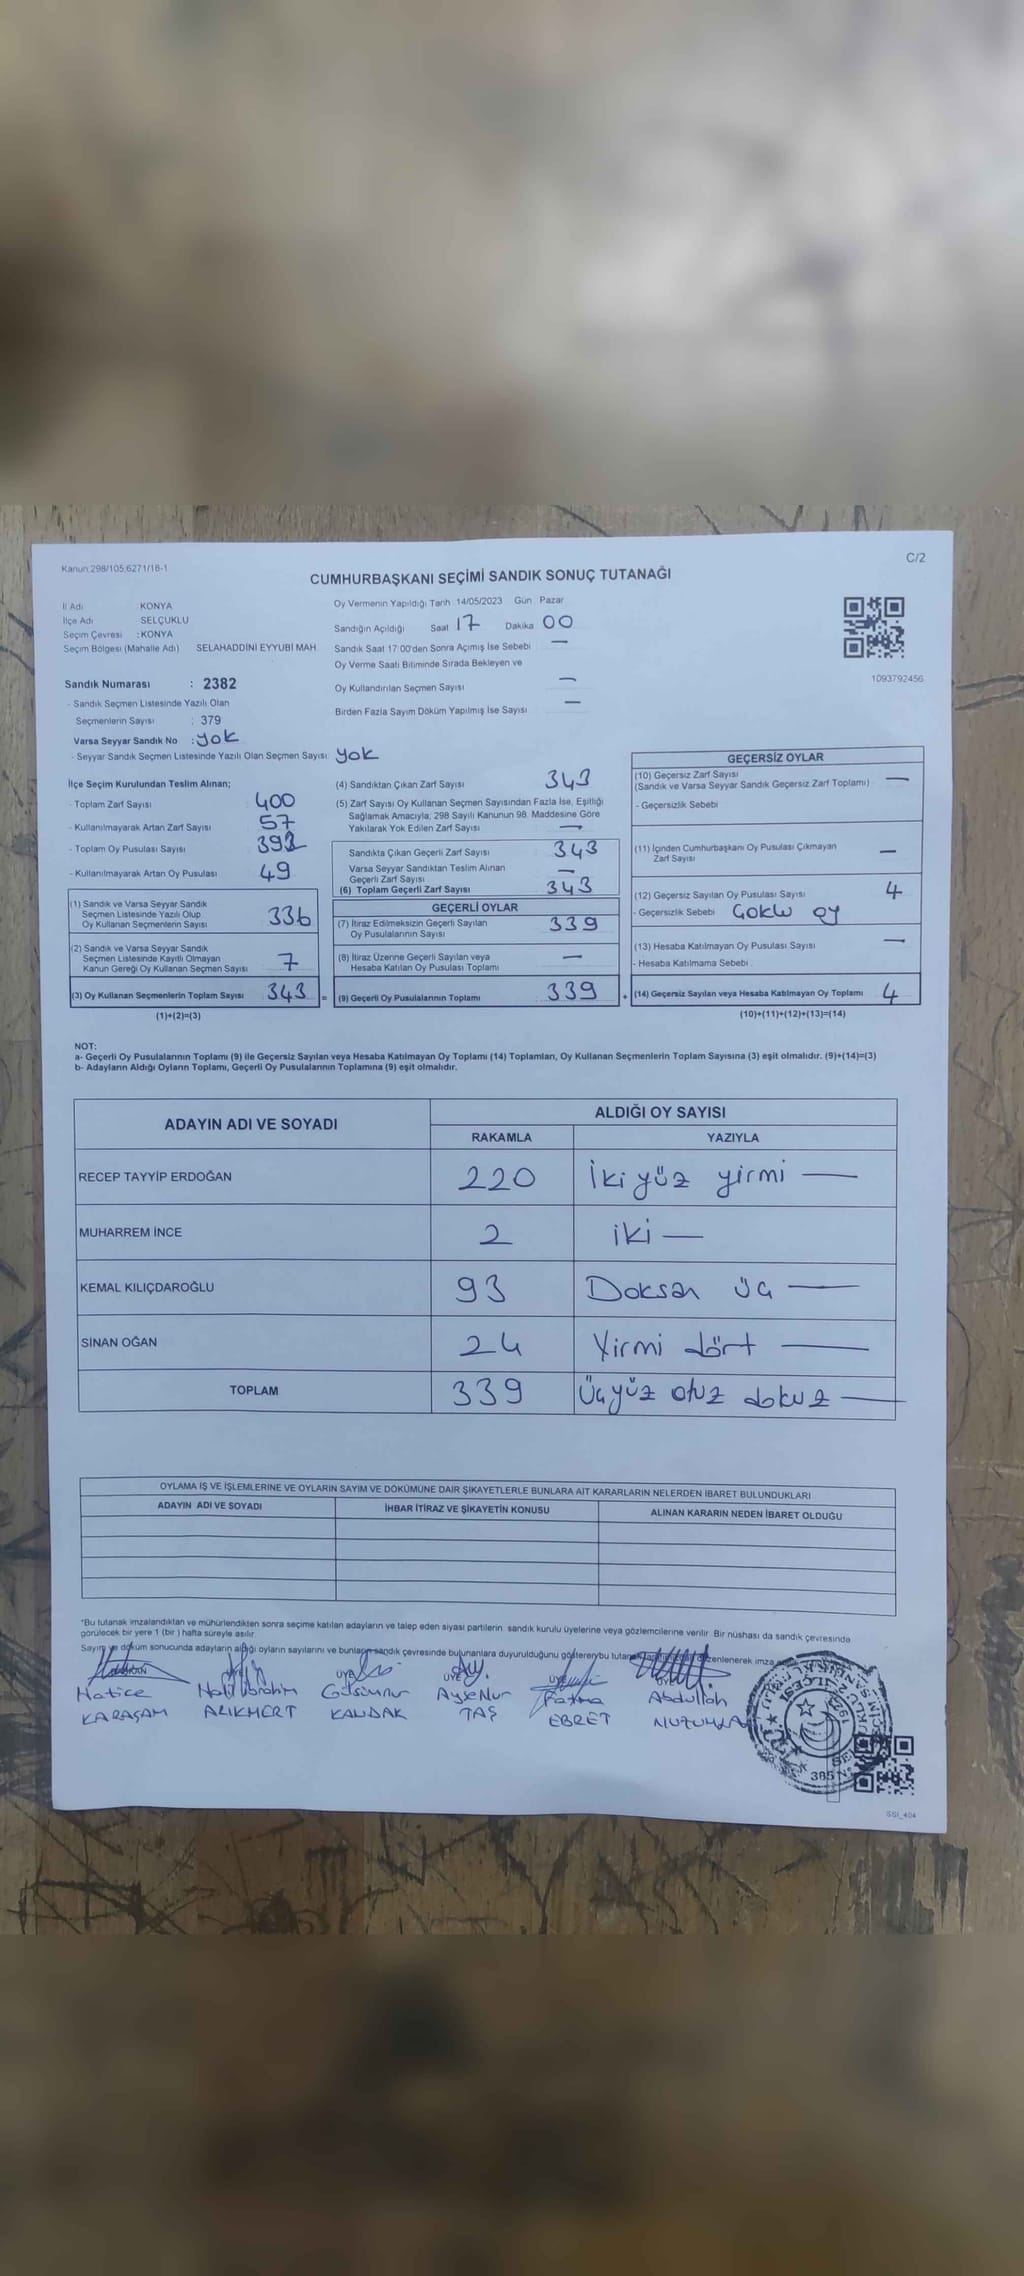 Kanun:298/105,6271/18-1
C/2
CUMHURBAŞKANI SEÇİMİ SANDIK SONUÇ TUTANAĞI
İl Adı KONYA
İlçe Adı SELÇUKLU
Seçim Çevresi : KONYA
Seçim Bölgesi (Mahalle Adı) SELAHADDİNİ EYYUBİ MAH.
Sandık Numarası : 2382
- Sandık Seçmen Listesinde Yazılı Olan
Seçmenlerin Sayısı : 379
Varsa Seyyar Sandık No : yok
- Seyyar Sandık Seçmen Listesinde Yazılı Olan Seçmen Sayısı: yok
Oy Vermenin Yapıldığı Tarih :14/05/2023 Gün Pazar
Sandığın Açıldığı Saat 17 Dakika 00
Sandık Saat 17:00'den Sonra Açılmış İse Sebebi —
Oy Verme Saati Bitiminde Sırada Bekleyen ve
Oy Kullandırılan Seçmen Sayısı —
Birden Fazla Sayım Döküm Yapılmış İse Sayısı —
1093792456
İlçe Seçim Kurulundan Teslim Alınan;
- Toplam Zarf Sayısı 400
- Kullanılmayarak Artan Zarf Sayısı 57
- Toplam Oy Pusulası Sayısı 392
- Kullanılmayarak Artan Oy Pusulası 49
(1) Sandık ve Varsa Seyyar Sandık
Seçmen Listesinde Yazılı Olup
Oy Kullanan Seçmenlerin Sayısı 336
(2) Sandık ve Varsa Seyyar Sandık
Seçmen Listesinde Kayıtlı Olmayan
Kanun Gereği Oy Kullanan Seçmen Sayısı 7
(3) Oy Kullanan Seçmenlerin Toplam Sayısı 343 =
(1)+(2)=(3)
(4) Sandıktan Çıkan Zarf Sayısı 343
(5) Zarf Sayısı Oy Kullanan Seçmen Sayısından Fazla İse, Eşitliği
Sağlamak Amacıyla, 298 Sayılı Kanunun 98. Maddesine Göre
Yakılarak Yok Edilen Zarf Sayısı —
Sandıkta Çıkan Geçerli Zarf Sayısı 343
Varsa Seyyar Sandıktan Teslim Alınan
Geçerli Zarf Sayısı —
(6) Toplam Geçerli Zarf Sayısı 343
GEÇERLİ OYLAR
(7) İtiraz Edilmeksizin Geçerli Sayılan
Oy Pusulalarının Sayısı 339
(8) İtiraz Üzerine Geçerli Sayılan veya
Hesaba Katılan Oy Pusulası Toplamı —
(9) Geçerli Oy Pusulalarının Toplamı 339 +
GEÇERSİZ OYLAR
(10) Geçersiz Zarf Sayısı —
(Sandık ve Varsa Seyyar Sandık Geçersiz Zarf Toplamı)
- Geçersizlik Sebebi
(11) İçinden Cumhurbaşkanı Oy Pusulası Çıkmayan
Zarf Sayısı —
(12) Geçersiz Sayılan Oy Pusulası Sayısı 4
- Geçersizlik Sebebi Çoklu oy
(13) Hesaba Katılmayan Oy Pusulası Sayısı —
- Hesaba Katılmama Sebebi :
(14) Geçersiz Sayılan veya Hesaba Katılmayan Oy Toplamı 4
(10)+(11)+(12)+(13)=(14)
NOT:
a- Geçerli Oy Pusulalarının Toplamı (9) ile Geçersiz Sayılan veya Hesaba Katılmayan Oy Toplamı (14) Toplamları, Oy Kullanan Seçmenlerin Toplam Sayısına (3) eşit olmalıdır. (9)+(14)=(3)
b- Adayların Aldığı Oyların Toplamı, Geçerli Oy Pusulalarının Toplamına (9) eşit olmalıdır.
ADAYIN ADI VE SOYADI ALDIĞI OY SAYISI
RAKAMLA YAZIYLA
RECEP TAYYİP ERDOĞAN 220 İki yüz yirmi —
MUHARREM İNCE 2 iki —
KEMAL KILIÇDAROĞLU 93 Doksan üç —
SİNAN OĞAN 24 Yirmi dört —
TOPLAM 339 Üçyüz otuz dokuz —
OYLAMA İŞ VE İŞLEMLERİNE VE OYLARIN SAYIM VE DÖKÜMÜNE DAİR ŞİKAYETLERLE BUNLARA AİT KARARLARIN NELERDEN İBARET BULUNDUKLARI
ADAYIN ADI VE SOYADI İHBAR İTİRAZ VE ŞİKAYETİN KONUSU ALINAN KARARIN NEDEN İBARET OLDUĞU
*Bu tutanak imzalandıktan ve mühürlendikten sonra seçime katılan adayların ve talep eden siyasi partilerin sandık kurulu üyelerine veya gözlemcilerine verilir. Bir nüshası da sandık çevresinde
görülecek bir yere 1 (bir ) hafta süreyle asılır.
Sayım ve döküm sonucunda adayların aldığı oyların sayılarını ve bunların sandık çevresinde bulunanlara duyurulduğunu gösteren bu tutanak düzenlenerek imza
BAŞKAN ÜYE ÜYE
Hatice Halil ibrahim Gülsümnur AyseNur Fatma Abdullah
KARAÇAM ALIKMERT KANDAK TAŞ EBRET
385
SSI_404